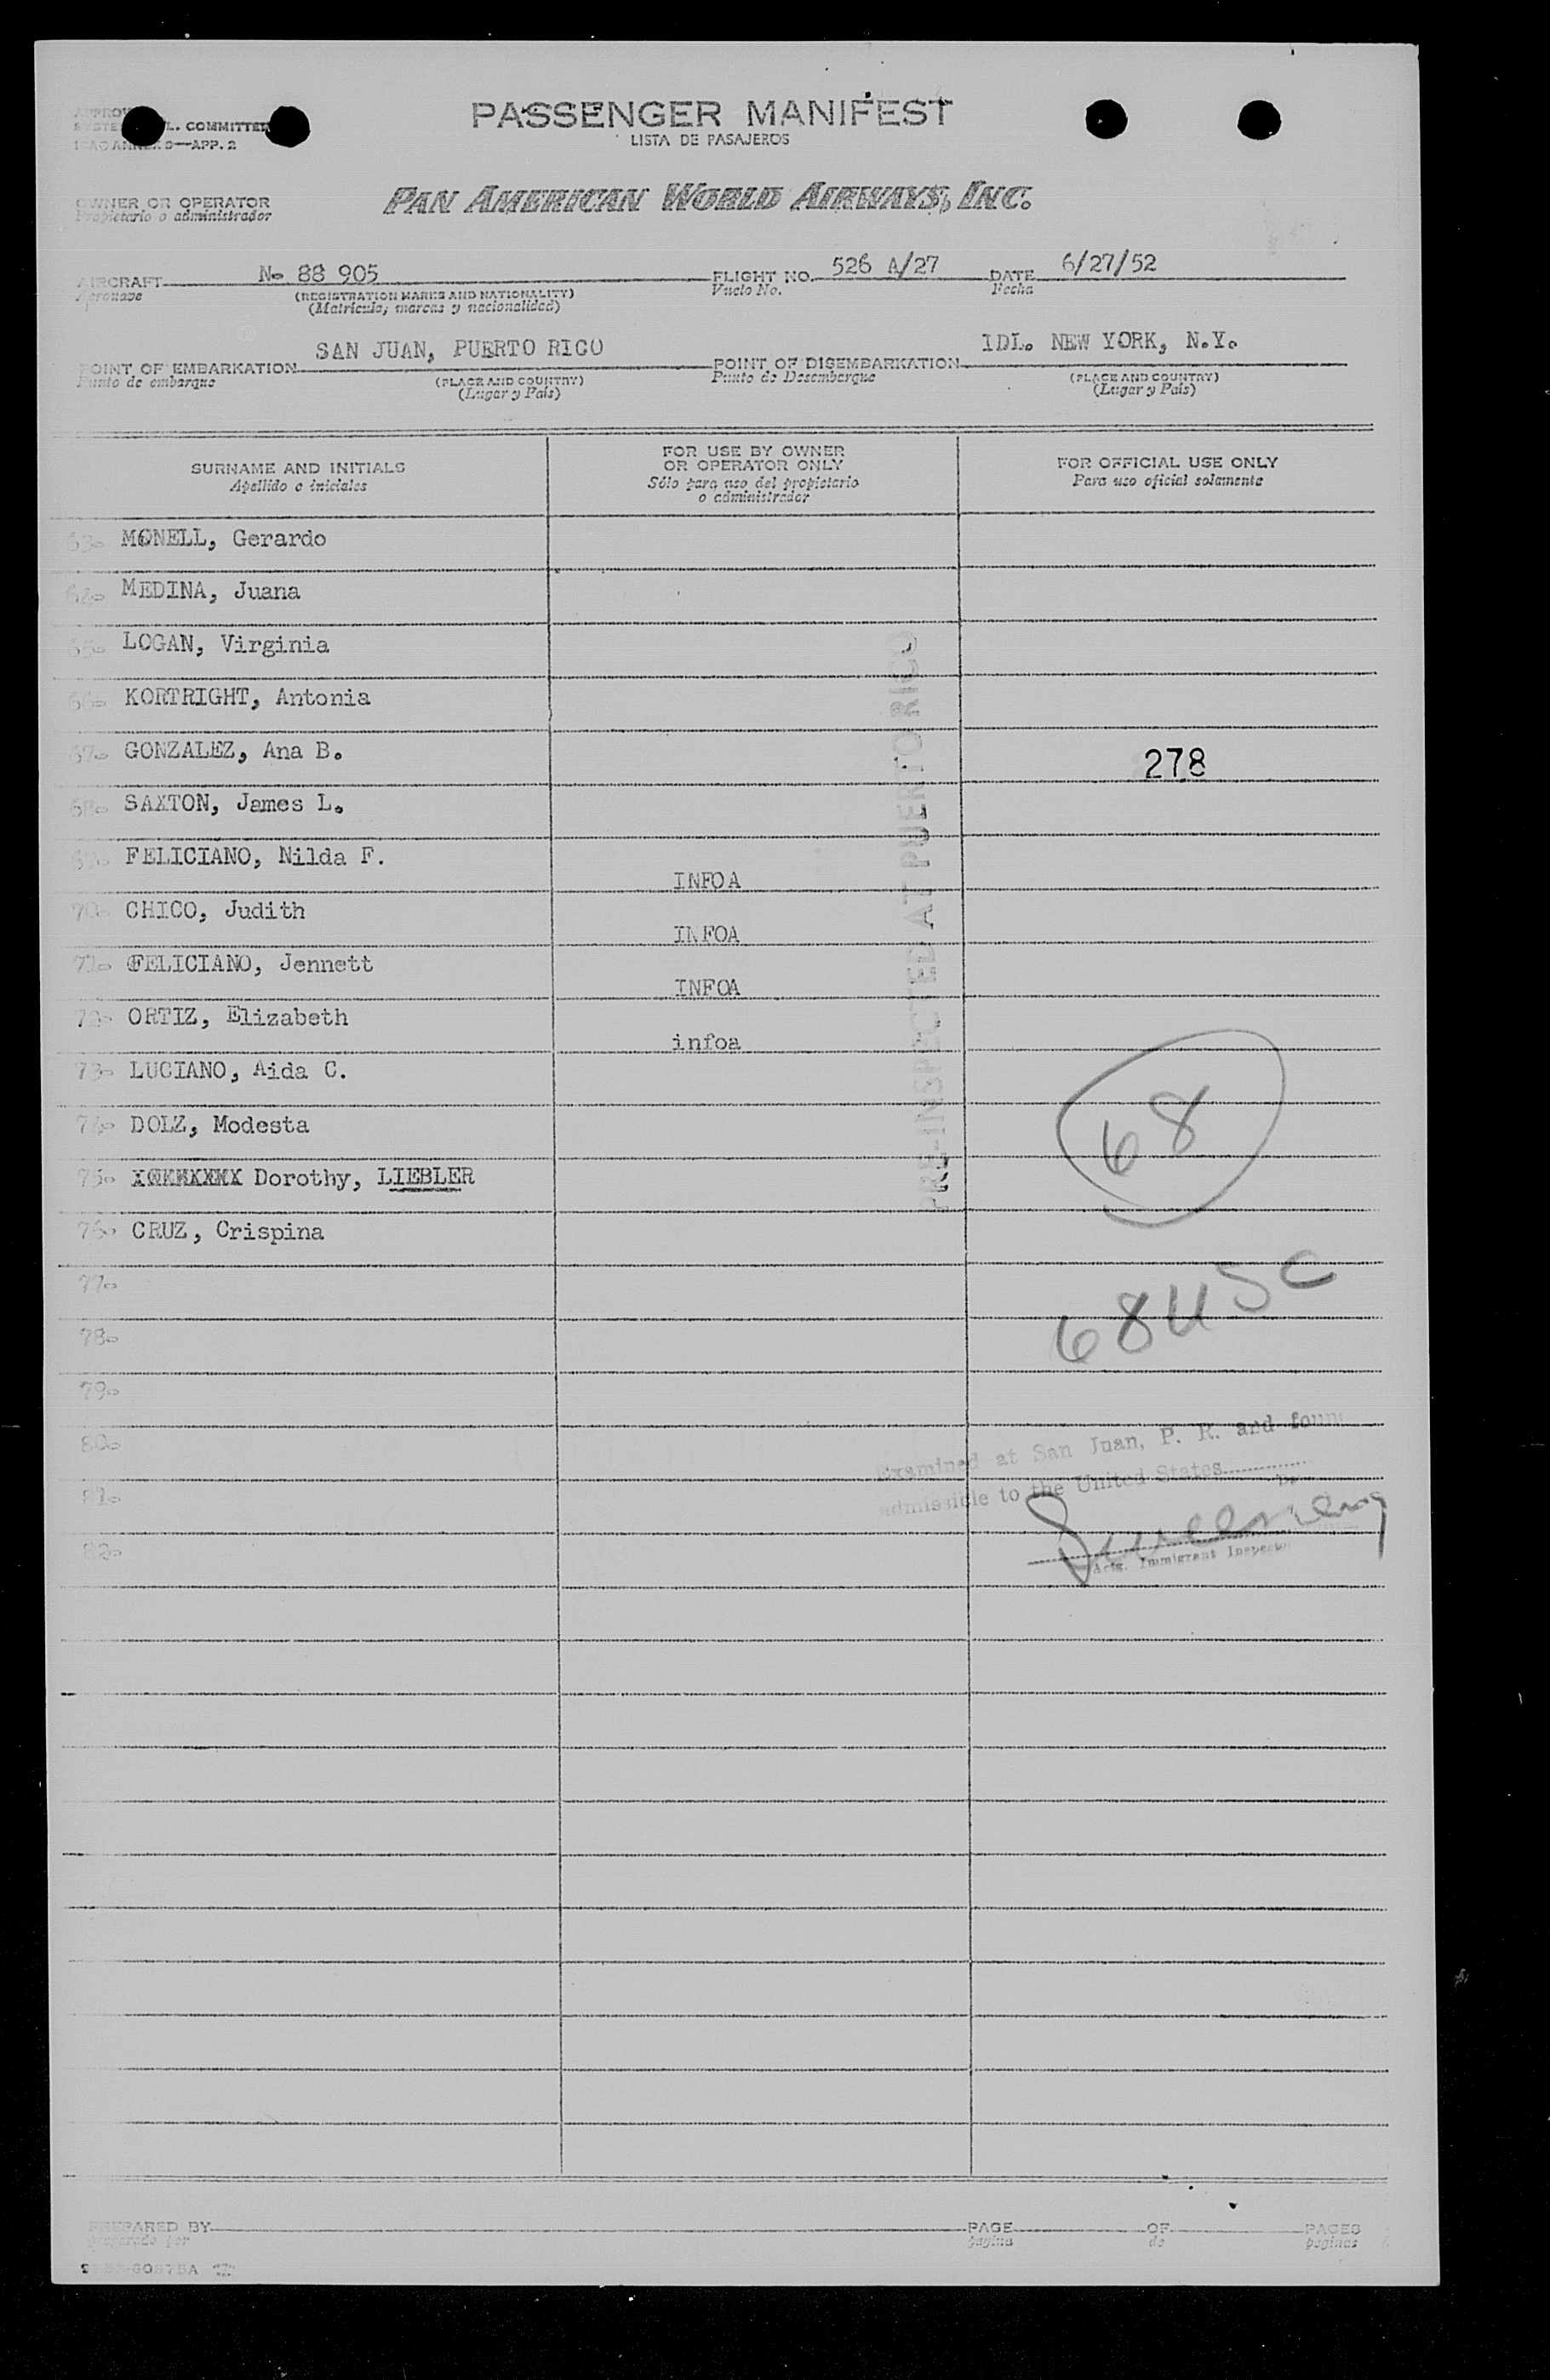 PASSENGER MANIFEST
LISTA DE PASAJEROS
L. COMMITTEE
APP. 2
OWNER OR OPERATOR
Propietario o administrador
PAN AMERICAN WORLD AIRWAYS, INC.
AIRCRAFT No 88 905 FLIGHT NO. 526 A/27 DATE 6/27/52
Aeronave (REGISTRATION MARKS AND NATIONALITY) Vuelo No. Fecha
(Matricula, marcas y nacionalidad)
POINT OF EMBARKATION SAN JUAN, PUERTO RICO POINT OF DISEMBARKATION IDL. NEW YORK, N.Y.
Punto de embarque (PLACE AND COUNTRY) Punto de Desembarque (PLACE AND COUNTRY)
(Lugar y País) (Lugar y País)
SURNAME AND INITIALS
Apellido e iniciales
FOR USE BY OWNER
OR OPERATOR ONLY
Sólo para uso del propietario
o administrador
FOR OFFICIAL USE ONLY
Para uso oficial solamente
63. MONELL, Gerardo
64. MEDINA, Juana
65. LOGAN, Virginia
66. KORTRIGHT, Antonia
67. GONZALEZ, Ana B. 278
68. SAXTON, James L.
69. FELICIANO, Nilda F. INFOA
70. CHICO, Judith INFOA
71. FELICIANO, Jennett INFOA
72. ORTIZ, Elizabeth infoa
73. LUCIANO, Aida C.
74. DOLZ, Modesta
75. Dorothy, LIEBLER
76. CRUZ, Crispina
77.
78.
79.
80.
81.
82.
PRE-INSPECTED AT PUERTO RICO
68
68 USC
Examined at San Juan, P. R. and found
admissible to the United States
Actg. Immigrant Inspector
PREPARED BY PAGE OF PAGES
Preparado por página de páginas